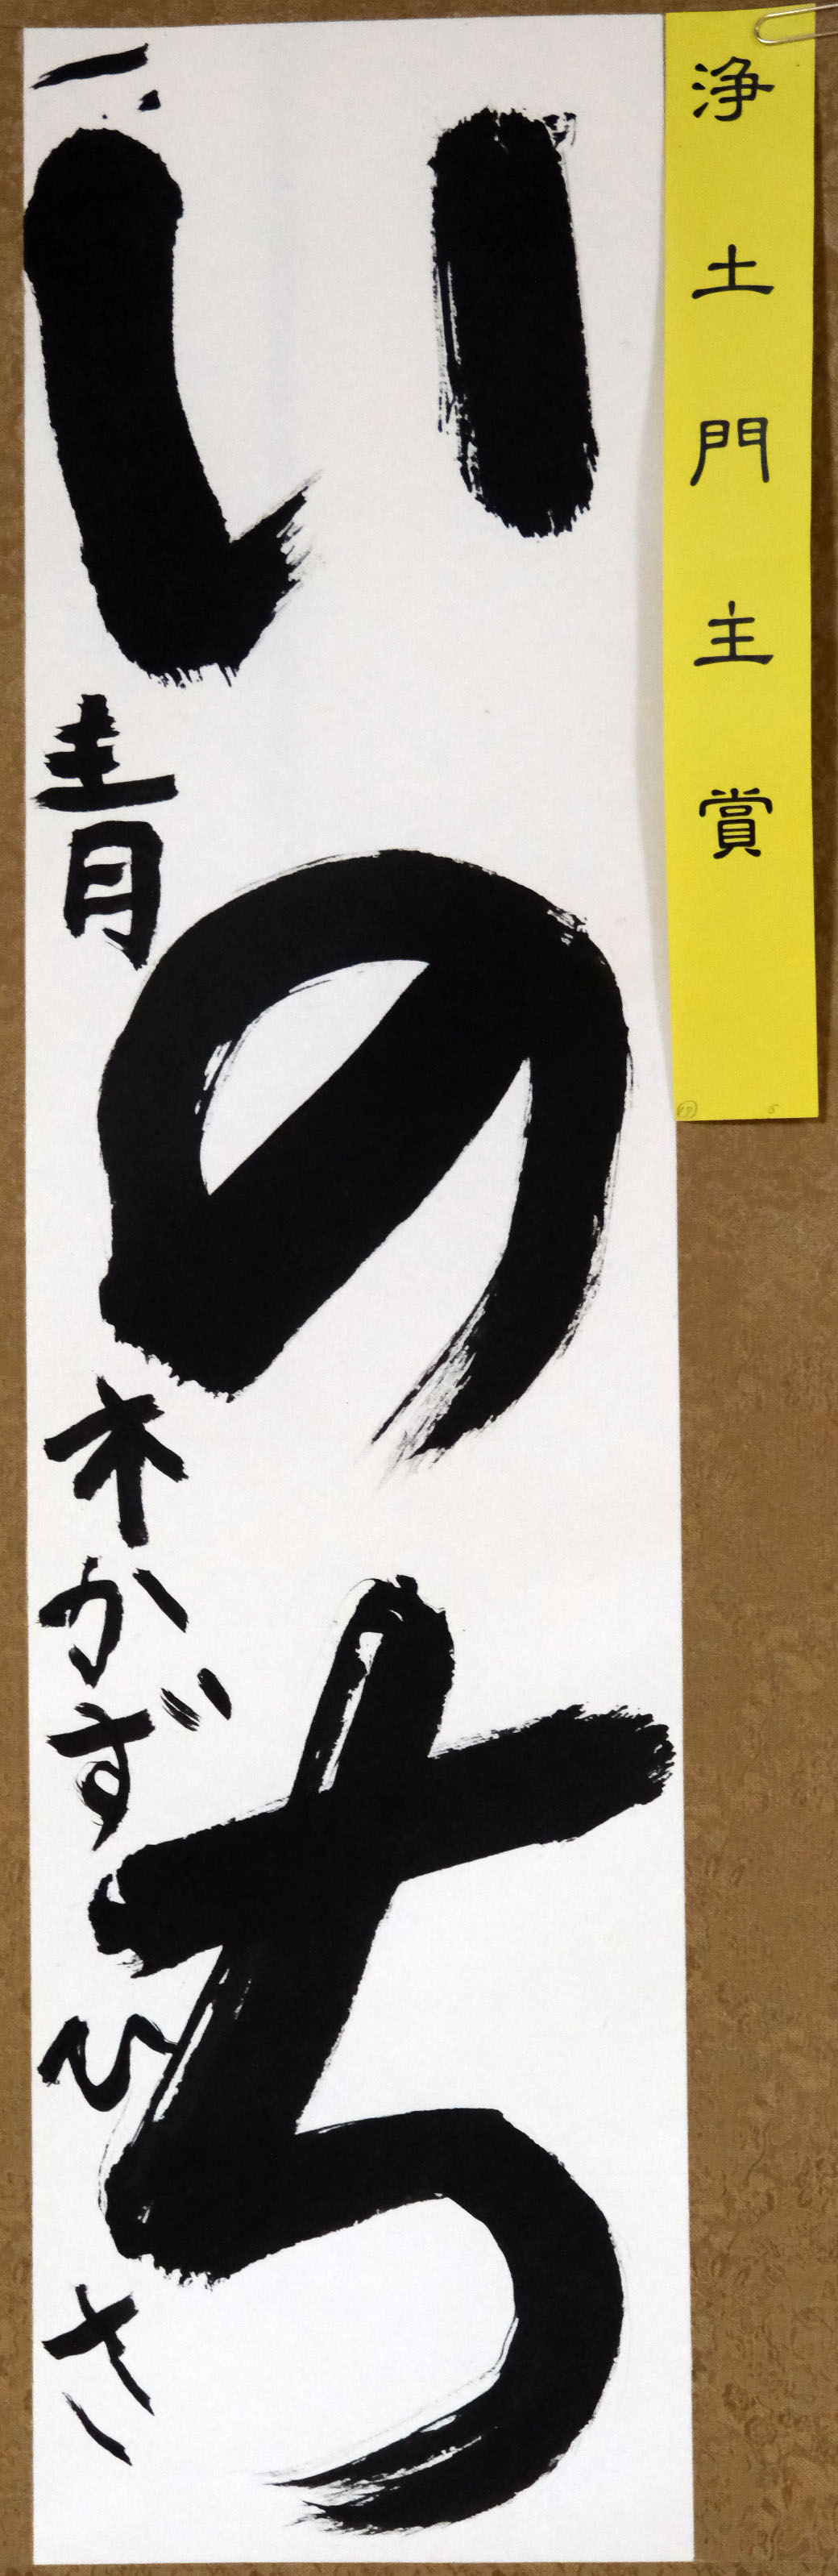 浄土門主賞
いのち
一青木かずひさ